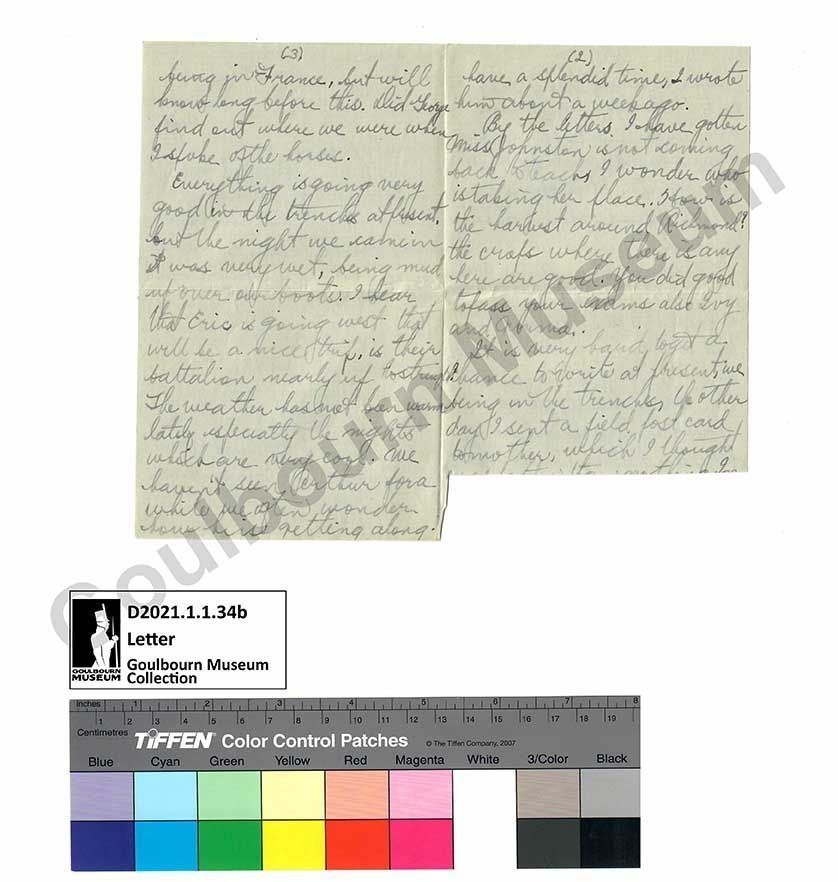 (3)
being in France, but will
know long before this. Did George
find out where we were when
I spoke of the horses.
Everything is going very
good in the trenches at present,
but the night we came in
it was very wet, being mud
up over our boots. I hear
that Eric is going west that
will be a nice trip, is their
battalion nearly up to strength?
The weather has not been warm
lately especially the nights
which are very cool. We
haven't seen Arthur for a
while we often wonder
how he is getting along.
(2)
have a splendid time, I wrote
him about a week ago.
By the letters I have gotten
Miss Johnston is not coming
back to teach, I wonder who
is taking her place. How is
the harvest around Richmond?
the crops where there is any
here are good. You did good
to pass your exams also Ivy
and
It is very hard to get a
chance to write at present, we
being in the trenches, the other
day I sent a field post card
to mother, which I thought
Goulbourn Museum
D2021.1.1.34b
Letter
Goulbourn Museum
Collection
GOULBOURN
MUSEUM
Inches 1 2 3 4 5 6 7 8
Centimetres 1 2 3 4 5 6 7 8 9 10 11 12 13 14 15 16 17 18 19
TIFFEN Color Control Patches © The Tiffen Company, 2007
Blue Cyan Green Yellow Red Magenta White 3/Color Black